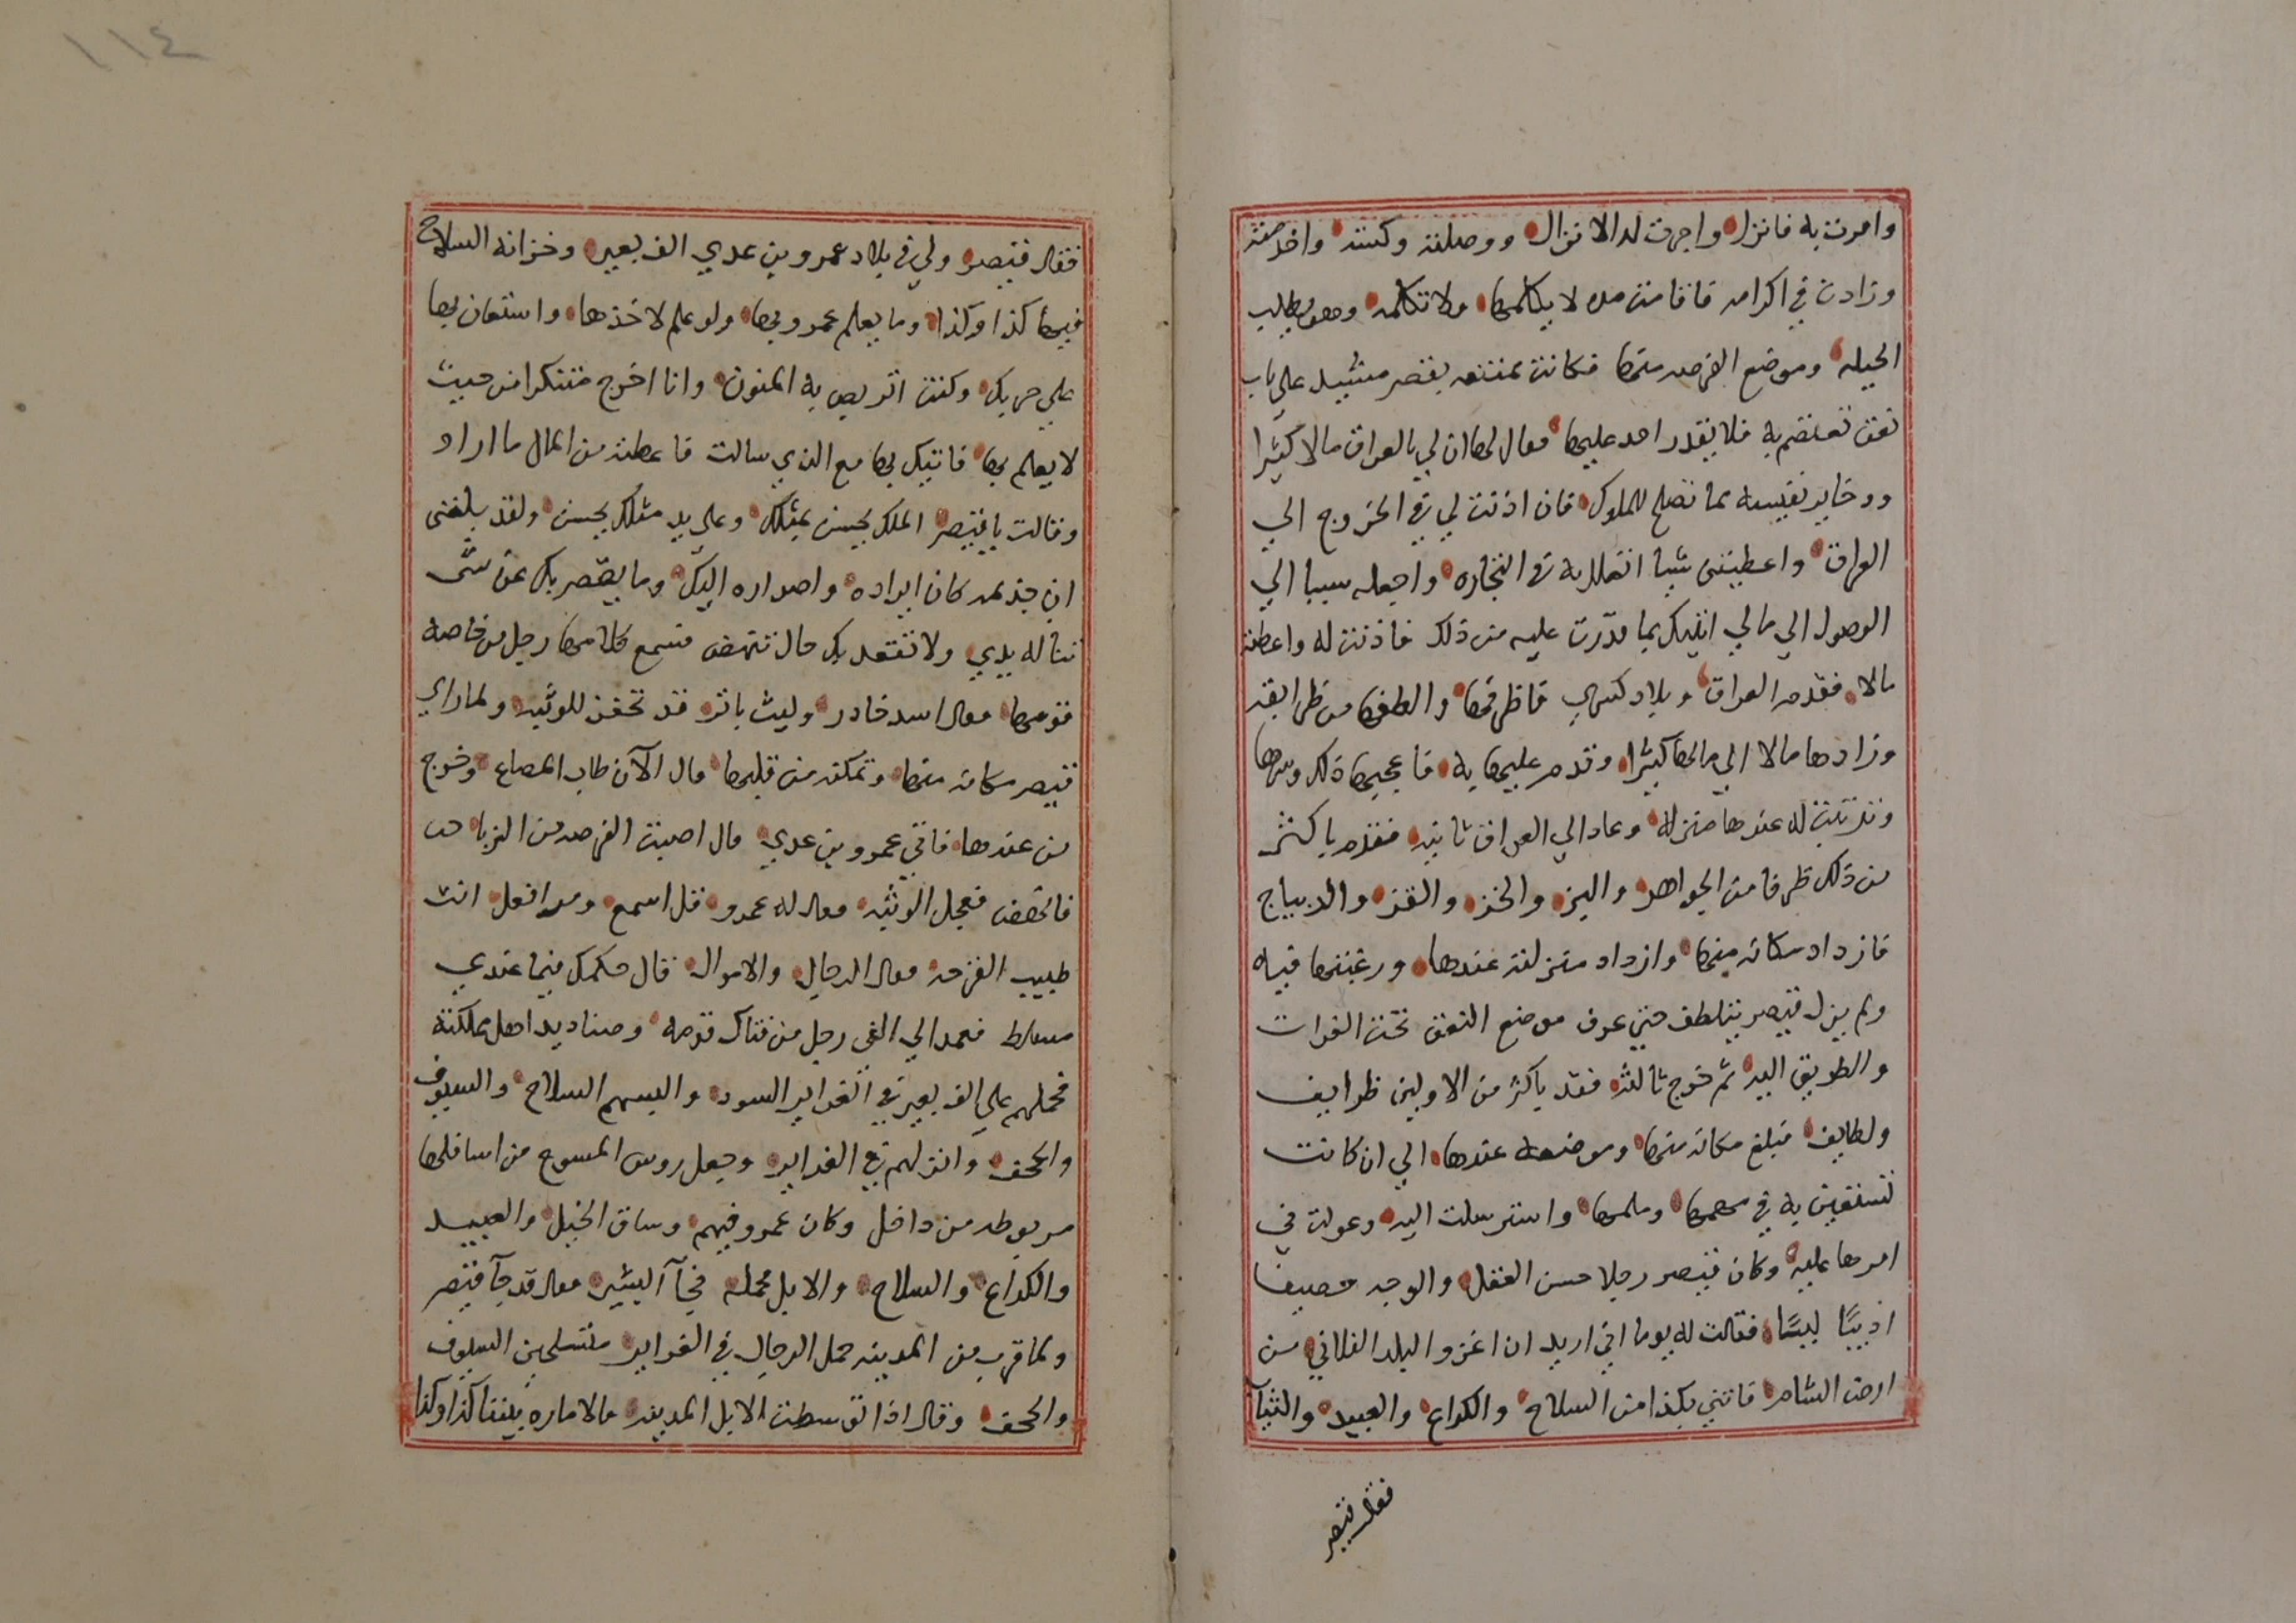 وامرت به فانزل واجرت له الانزال ووصلته وكسته واخدمته
وزادت في اكرامه فاقامت مده لا يكلمها ولا تكلمه وهو يطلب
الحيله وموضع الفرصه منها فكانت ممتنعه بقصر مشيد على باب
نفق تعتصم به فلا يقدر احد عليها فقال لها ان لي بالعراق مالا كثيرا
وذخاير نفيسه مما تصلح للملوك فان اذنت لي في الخروج الي
العراق واعطيتني شيا اتعلل به في التجاره واجعله سببا الي
الوصول الي مالي اتيتك بما قدّرت عليه من ذلك فاذنت له واعطته
مالا فقدم العراق وبلاد كسري فاطرفها والطفها من طرايفه
وزادها مالا الي مالها كثيرا وقدم عليها به فاعجبها ذلك وسرها
وترتبت له عندها منزله وعاد الي العراق ثانيه فقدم باكثر
من ذلك طرفا من الجواهر والبز والخز والقز والديباج
فازداد مكانه منها وازداد منزلته عندها ورغبتها فيه
ولم يزل قيصر يتلطف حتي عرف موضع النفق تحت الفرات
والطريق اليه ثم خرج ثالثه فقدم باكثر من الاوليين ظرايف
ولطايف فبلغ مكانه منها وموضعه عندها الي ان كانت
تستعين به في مهمها وملمها واسترسلت اليه وعولت في
امرها عليه وكان قيصر رجلا حسن العقل والوجه حصيفا
اديبًا لبيبًا فقالت له يوما اني اريد ان اغزو البلد الفلاني من
ارض الشام فاتني بكذا من السلاح والكراع والعبيد والثياب
فقال قيصر
١١٤
فقال قيصر ولي في بلاد عمرو بن عدي الف بعير وخزانه السلاح
فيها كذا وكذا وما يعلم عمرو بها ولو علم لاخذها واستعان بها
علي حربك وكنت اتربص به المنون وانا اخرج متنكرا من حيث
لا يعلم بها فاتيك بها مع الذي سالت فاعطته من المال ما اراد
وقالت يا قيصر الملك يحسن بمثلك وعلي يد مثلك يحسن ولقد بلغني
ان جذيمه كان ايراده واصداره اليك وما يقصر بك عن شي
تناله يدي ولا تقعد بك حال تنهض فسمع كلامها رجل من خاصه
قومها فقال اسد خادر وليث باتر قد تحفز للوثبه ولما راي
قيصر مكانه منها وتمكنه من قلبها قال الآن طاب المصاع وخرج
من عندها فاتي عمرو بن عدي قال اصبت الفرصه من الزبا
فانهض فعجل الوثبه فقال له عمرو قل اسمع ومر افعل انت
طبيب القرحه فقال الرجال والاموال قال حكمك فيما عندي
مسلط فعمد الي الفي رجل من فتاك قومه وصناديد اهل مملكته
فحملهم علي الف بعير في الغراير السود والبسهم السلاح والسيوف
والحجف وانزلهم في الغراير وجعل روس المسوح من اسافلها
مربوطه من داخل وكان عمرو فيهم وساق الخيل والعبيد
والكراع والسلاح والابل محمله فجآ البشير فقال قد جآ قيصر
ولما قرب من المدينه حمل الرجال في الغراير متسلحين السيوف
والحجف وقال اذا توسطت الابل المدينه فالاماره بيننا كذا وكذا